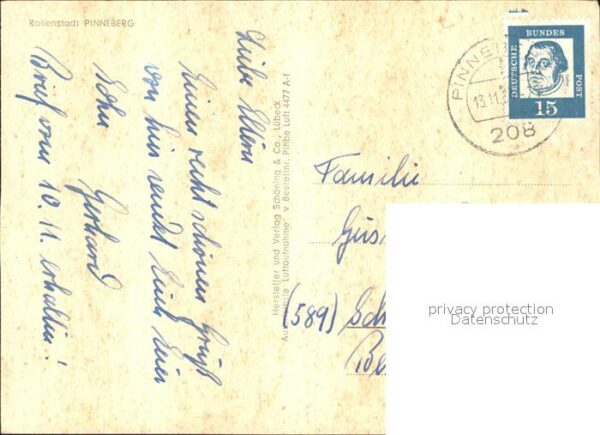 Rosenstadt PINNEBERG
Liebe Eltern
Einen recht schönen Gruß
von hier sendet Euch Euer
Sohn
Gerhard
Brief vom 10.11. erhalten!
Hersteller und Verlag Schöning & Co., Lübeck
"Luftaufnahme" v Bestellnr. Pinbe Luft 4477 A-f
PINNE
13.11.
208
DEUTSCHE BUNDES POST
15
Familie
Gus
(589) Sch
Be
privacy protection
Datenschutz